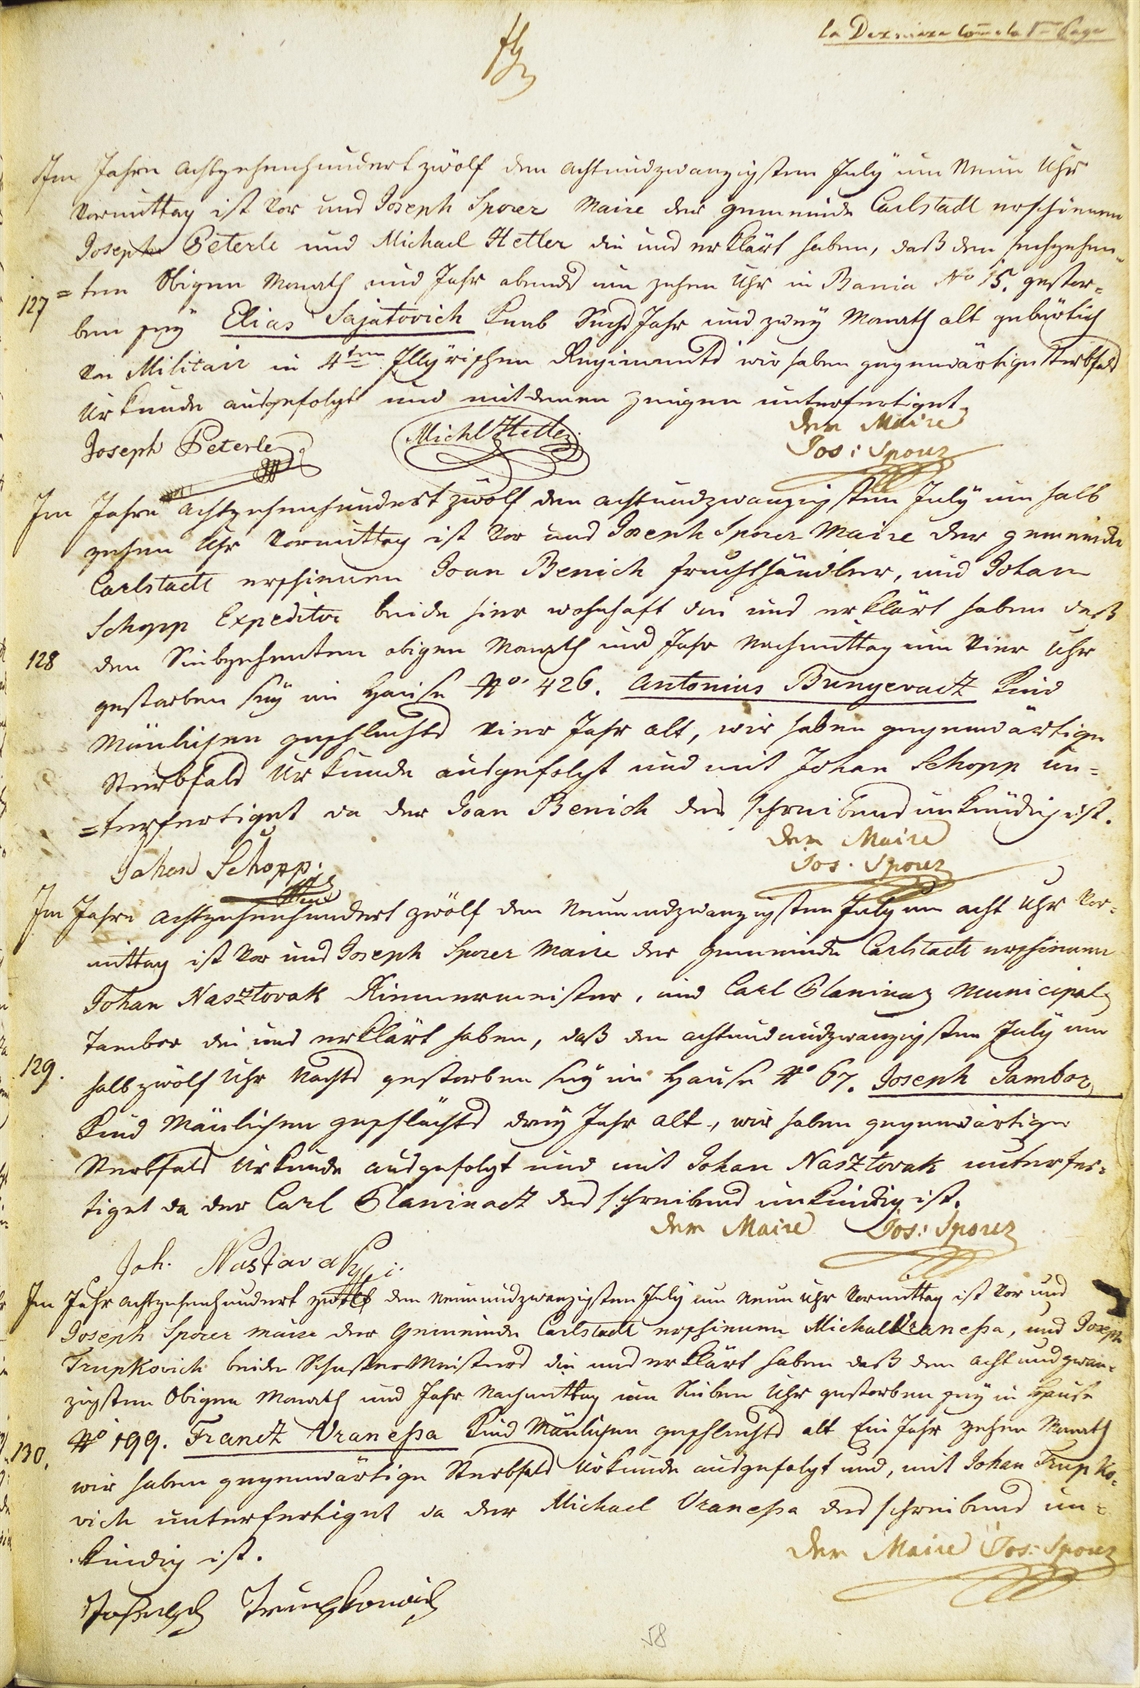 la Derniere Com̄e la 1re Page
Im Jahre achtzehenhundert zwölf den achtundzwanzigsten July um Neun Uhr
Vormittag ist vor und Joseph Sporer Maire der gemeinde Carlstadt erschienen
Joseph Peterle und Michael Hetler die und erklärt haben, daß den sechzehen-
127 =ten Obigen Monath und Jahr abends um zehen Uhr in Bania No 15. gestor-
ben seÿ Elias Sajatovich Knab Sechs Jahr und zweÿ Monath alt gebürtich
von Militair in 4ten Illÿrischen Regiments wir haben gegenwärtige Sterbfald
Urkunde ausgefolgt und mit denen zeugen unterfertiget.
Joseph Peterle Michl Hetler der Maire
Jos: Sporer
Im Jahre achtzehenhundert zwölf den achtundzwanzigsten July um halb
zehen Uhr Vormittag ist vor und Joseph Sporer Maire der gemeinde
Carlstadt erschienen Joan Benich fruchthändler, und Johan
Schopp Expeditor beide hier wohnhaft die und erklärt haben daß
128 den Siebzehenten obigen Monath und Jahr Nachmittag um Vier Uhr
gestorben seÿ im Hause No 426. Antonius Bungevacz Kind
Mänlichen geschlechts vier Jahr alt, wir haben gegenwärtige
Sterbfald Urkunde ausgefolgt und mit Johan Schopp un=
=terfertiget da der Joan Benich des schreibens unkündig ist.
der Maire
Johan Schopp. Jos. Sporer
Im Jahre achtzehenhundert zwölf den Neunundzwanzigsten July um acht Uhr Vor-
mittag ist vor und Joseph Sporer Maire der gemeinde Carlstadt erschienen
Johan Nasztovak Riemermeister, und Carl Planinaz Municipal
Tambor die und erklärt haben, daß den achtundundzwanzigsten July um
129. halb zwölf Uhr Nachts gestorben seÿ im Hause No 67. Joseph Jambor
Kind Mänlichen geschlächts dreÿ Jahr alt, wir haben gegenwärtige
Sterbfald Urkunde ausgefolgt und mit Johan Nasztovak unterfer=
tiget da der Carl Planinacz des schreibens unkündig ist.
der Maire Jos: Sporer
Joh. Nastavak
Im Jahr achtzehenhundert zwölf den Neunundzwanzigsten July um Neun Uhr Vormittag ist vor und
Joseph Sporer Maire der Gemeinde Carlstadt erschienen Michael Vranessa, und Joseph
Trupkovich beide Schuster Meister die und erklärt haben daß den acht und zwan-
zigsten Obigen Monath und Jahr Nachmittag um Sieben Uhr gestorben seÿ in Hause
130. No 199. Francz Vranessa Kind Mänlichen geschlechts alt Ein Jahr zehen Monath
wir haben gegenwärtige Sterbfald Urkunde ausgefolgt und, mit Johan Trupko-
vich unterfertiget da der Michael Vranessa des schreibens un=
kündig ist.
der Maire Jos: Sporer
Joseph Trupkovich
58